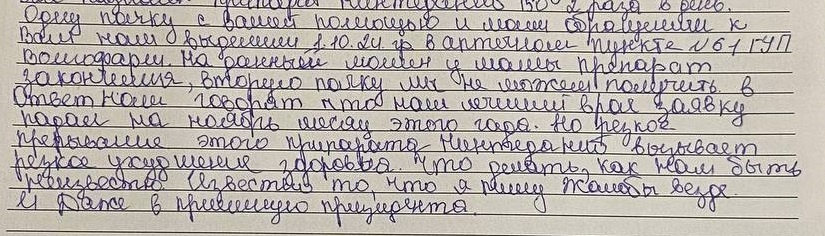 Нинтеданиб 150 2 раза в день.
Одну пачку с вашей помощью и моим обращении к
Вам нам выделили 1.10.24 г в аптечном пункте №61 ГУП
Волгофарм. На данный момент у мамы препарат
закончился, вторую пачку мы не можем получить в
Ответ нам говорят что наш лечащий врач заявку
подал на ноябрь месяц этого года. Но резкое
прерывание этого припарата Нинтеданиб вызывает
резкое ухудшение здоровья. Что делать, как нам быть
неизвестно. Известно то, что я пишу жалобы везде.
И Даже в приемную президента.